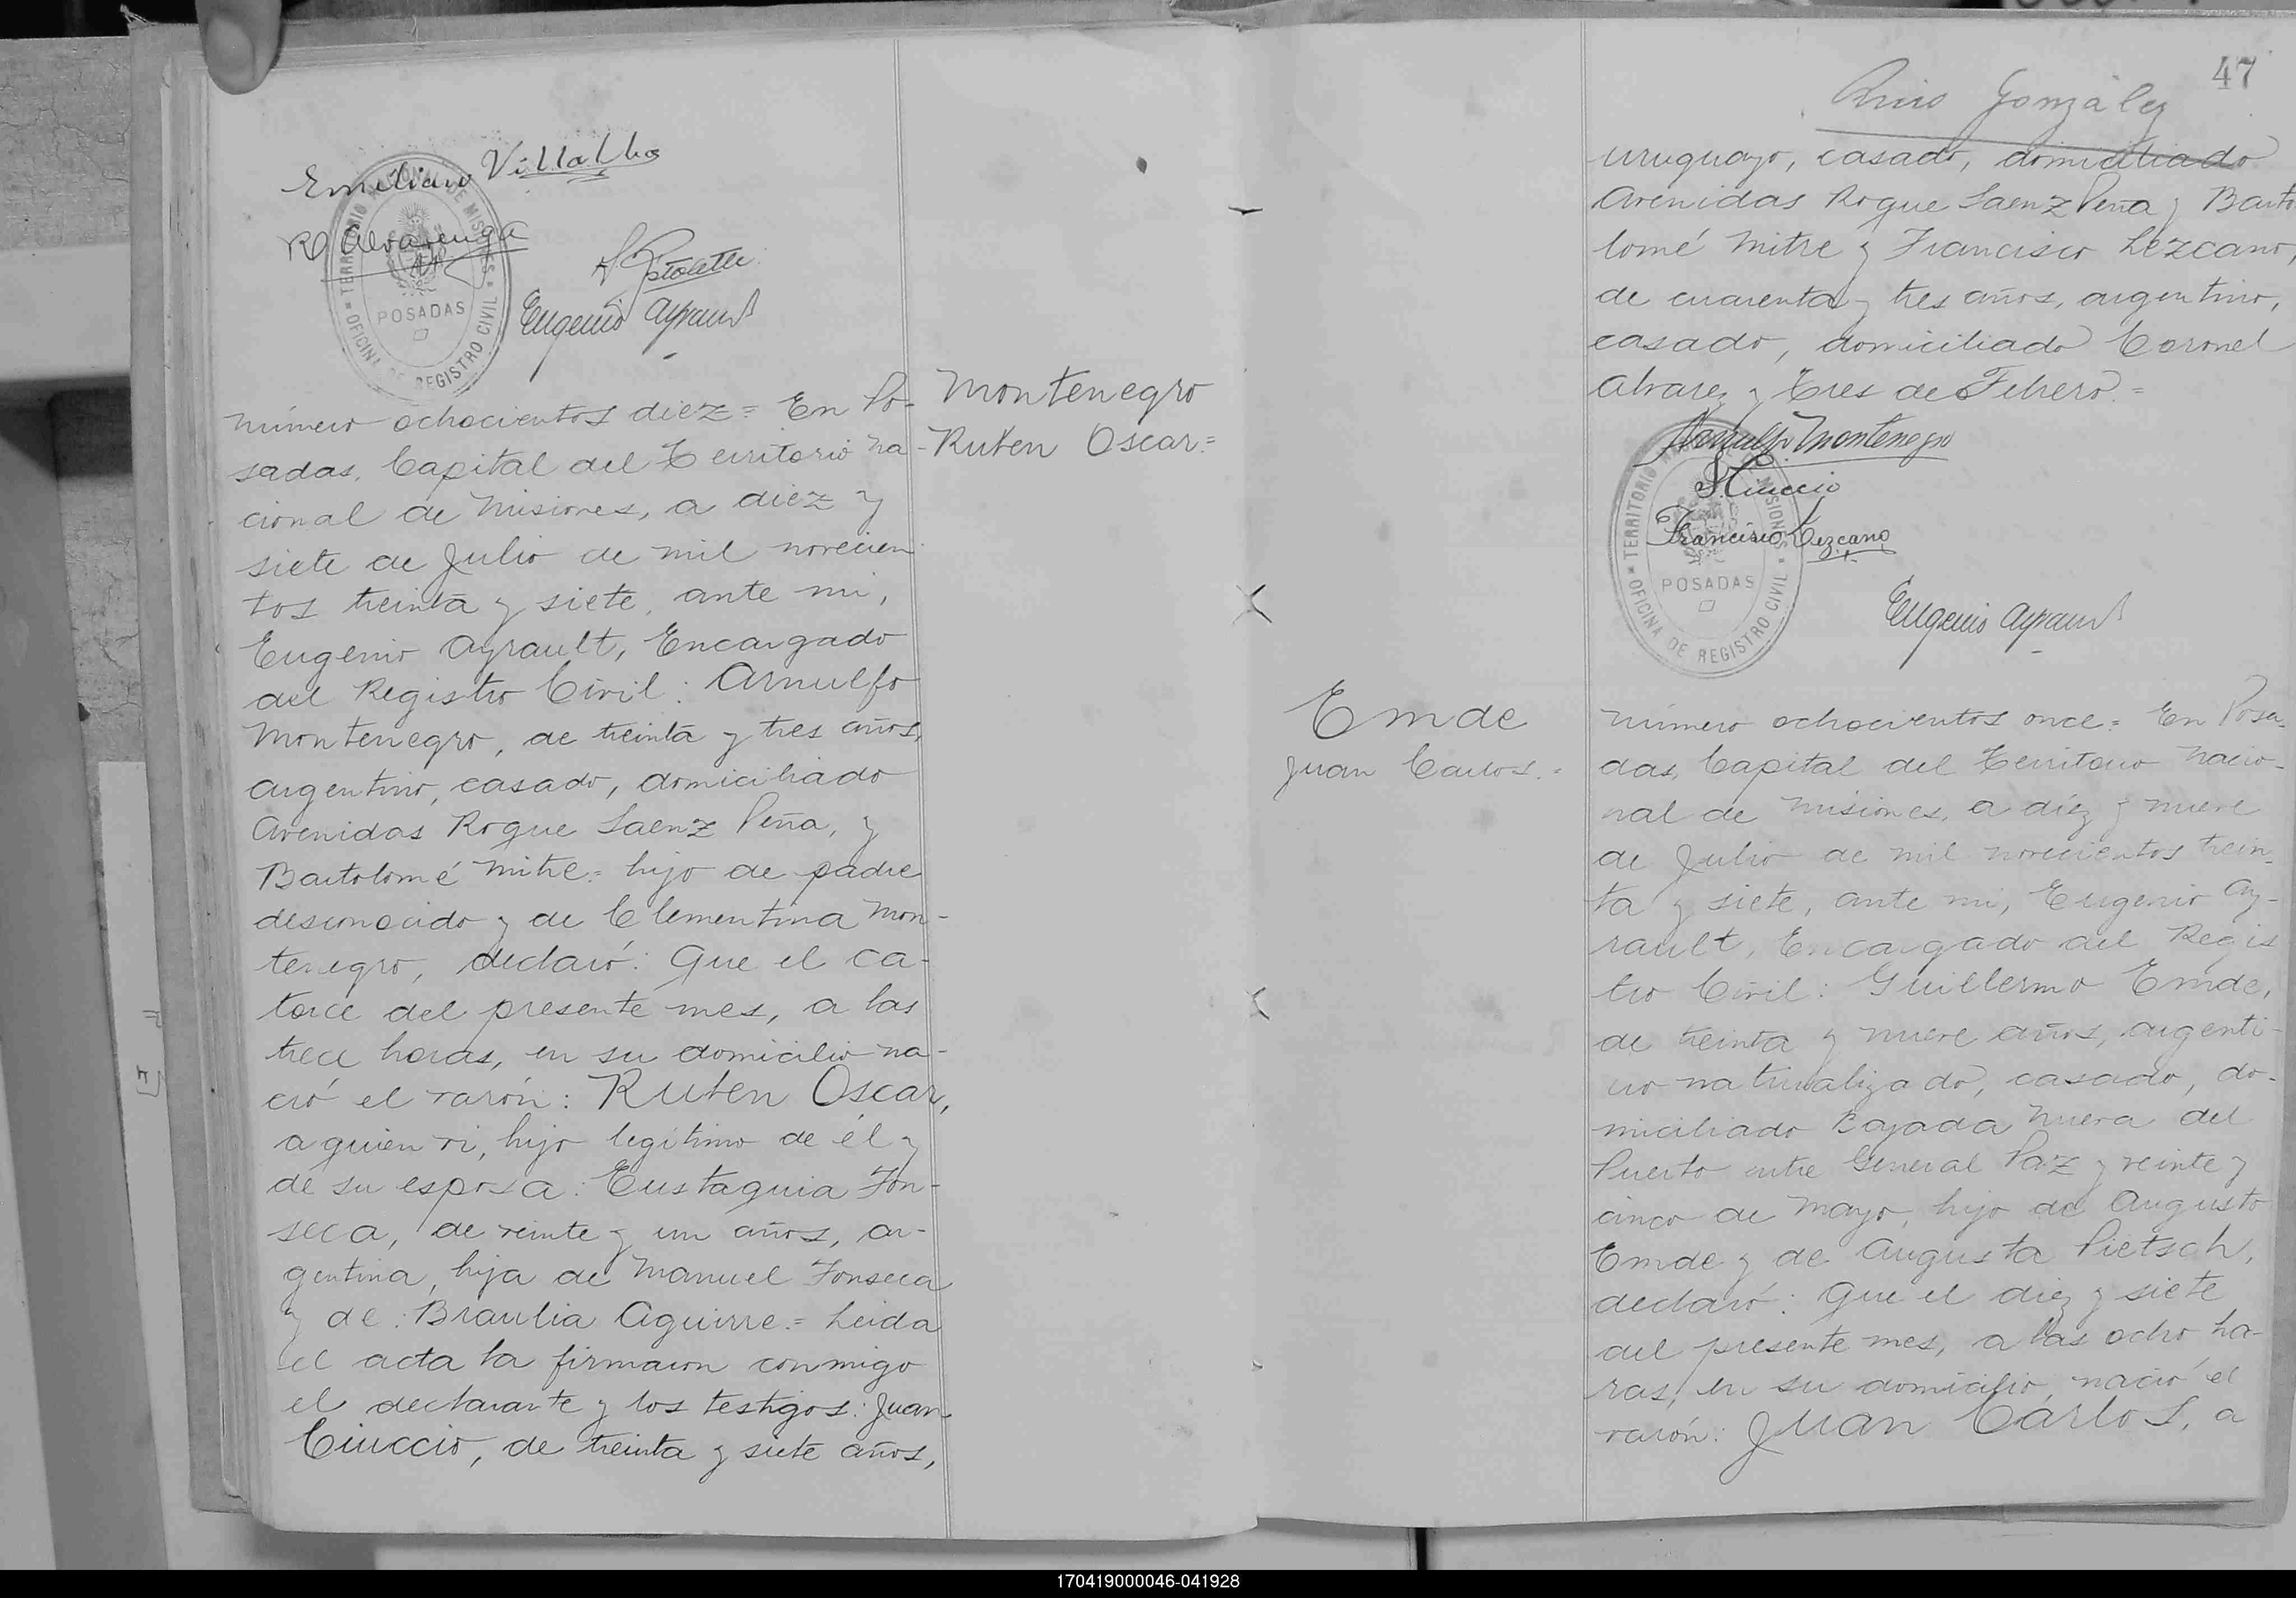 Emiliano Villalba
R Alvarenga
Eugenio Ayrault
TERRITORIO NACIONAL DE MISIONES
POSADAS
OFICINA DE REGISTRO CIVIL
Número ochocientos diez = En Po-
sadas, Capital del Territorio Na-
cional de Misiones, a diez y
siete de Julio de mil novecien
tos treinta y siete, ante mi,
Eugenio Ayrault, Encargado
del Registro Civil: Arnulfo
Montenegro, de treinta y tres años,
argentino, casado, domiciliado
Avenidas Roque Saenz Peña, y
Bartolomé Mitre = hijo de padre
desconocido y de Clementina Mon-
tenegro, declaró: Que el ca-
torce del presente mes, a las
trece horas, en su domicilio na-
ció el varón: Ruben Oscar,
a quien vi, hijo legitimo de él y
de su esposa: Eustaquia Fon-
seca, de veinte y un años, ar-
gentina, hija de Manuel Fonseca
y de: Braulia Aguirre = Leida
el acta la firmaron conmigo
el declarante y los testigos: Juan
Ciuccio, de treinta y siete años,
Montenegro
Ruben Oscar =
47
González
uruguayo, casado, domiciliado
Avenidas Roque Saenz Peña y Barto
lomé Mitre y Francisco Lezcano,
de cuarenta y tres años, argentino,
casado, domiciliado Coronel
Alvarez y Tres de Febrero =
Arnulfo Montenegro
J Ciuccio
Francisco Lezcano
TERRITORIO NACIONAL DE MISIONES
POSADAS
OFICINA DE REGISTRO CIVIL
Eugenio Ayrault
Emde
Juan Carlos =
Número ochocientos once = En Posa-
das, Capital del Territorio Nacio-
nal de Misiones, a diez y nueve
de Julio de mil novecientos trein-
ta y siete, ante mi, Eugenio Ay-
rault, Encargado del Regis
tro Civil: Guillermo Emde,
de treinta y nueve años, argenti-
no naturalizado, casado, do-
miciliado Bajada Nueva del
Puerto entre General Paz y veinte y
cinco de Mayo, hijo de Augusto
Emde y de Augusta Pietsch,
declaró: Que el diez y siete
del presente mes, a las ocho ho-
ras, en su domicilio, nació el
varón: Juan Carlos, a
170419000046-041928